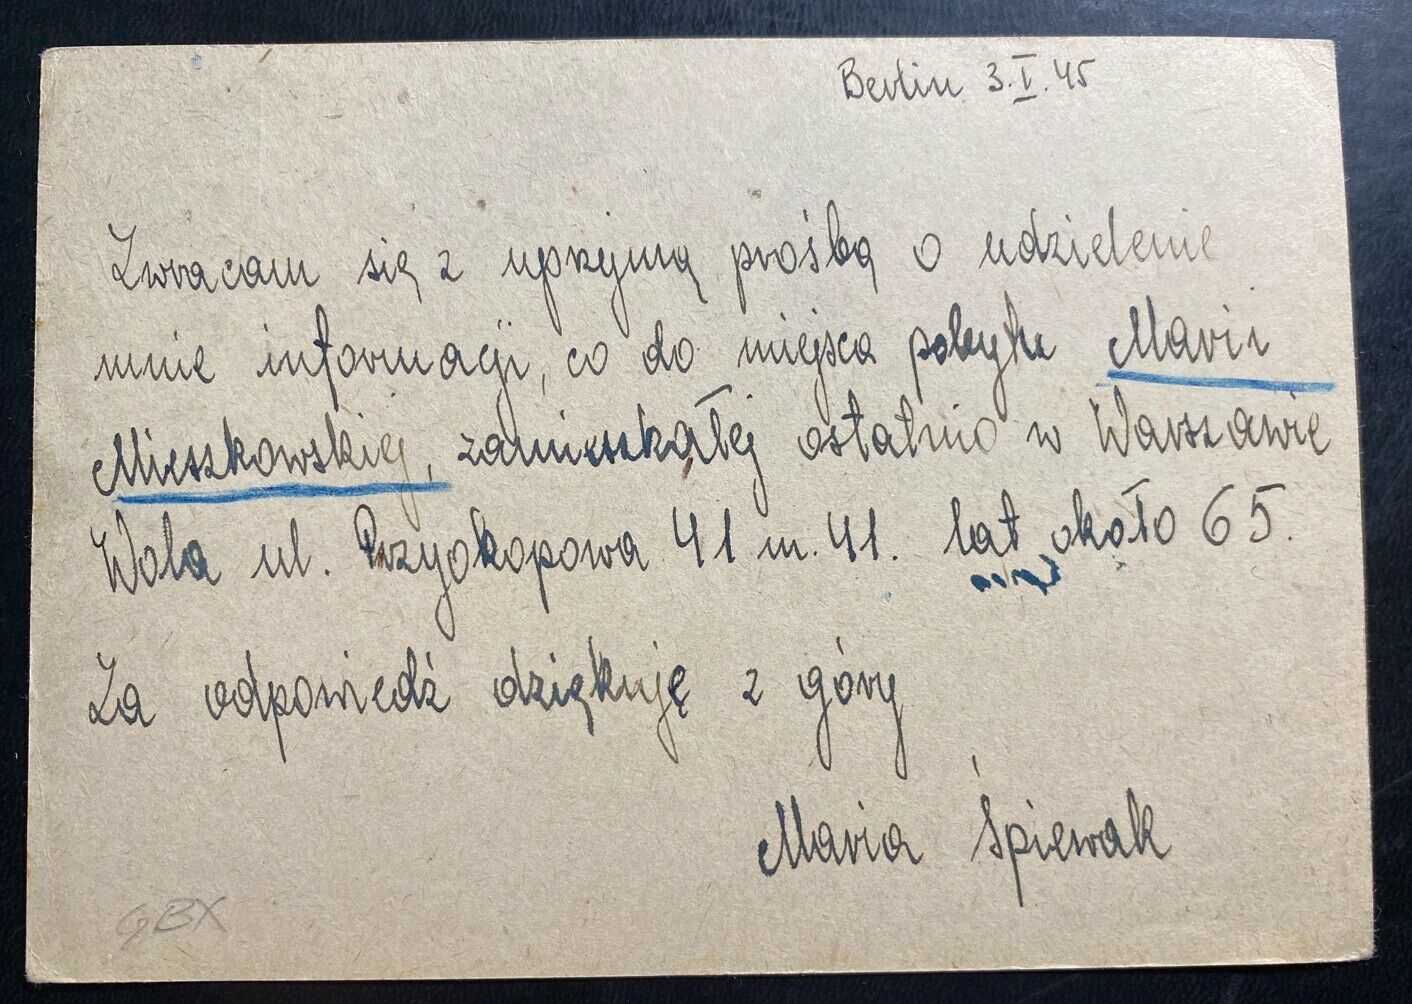 Berlin 3.I.45
Zwracam się z uprzejmą prośbą o udzielenie
mnie informacji, co do miejsca pobytu Marii
Mieszkowskiej, zamieszkałej ostatnio w Warszawie
Wola ul. Przyokopowa 41 m. 41. lat około 65.
Za odpowiedź dziękuję z góry
Maria Śpiewak
GBX